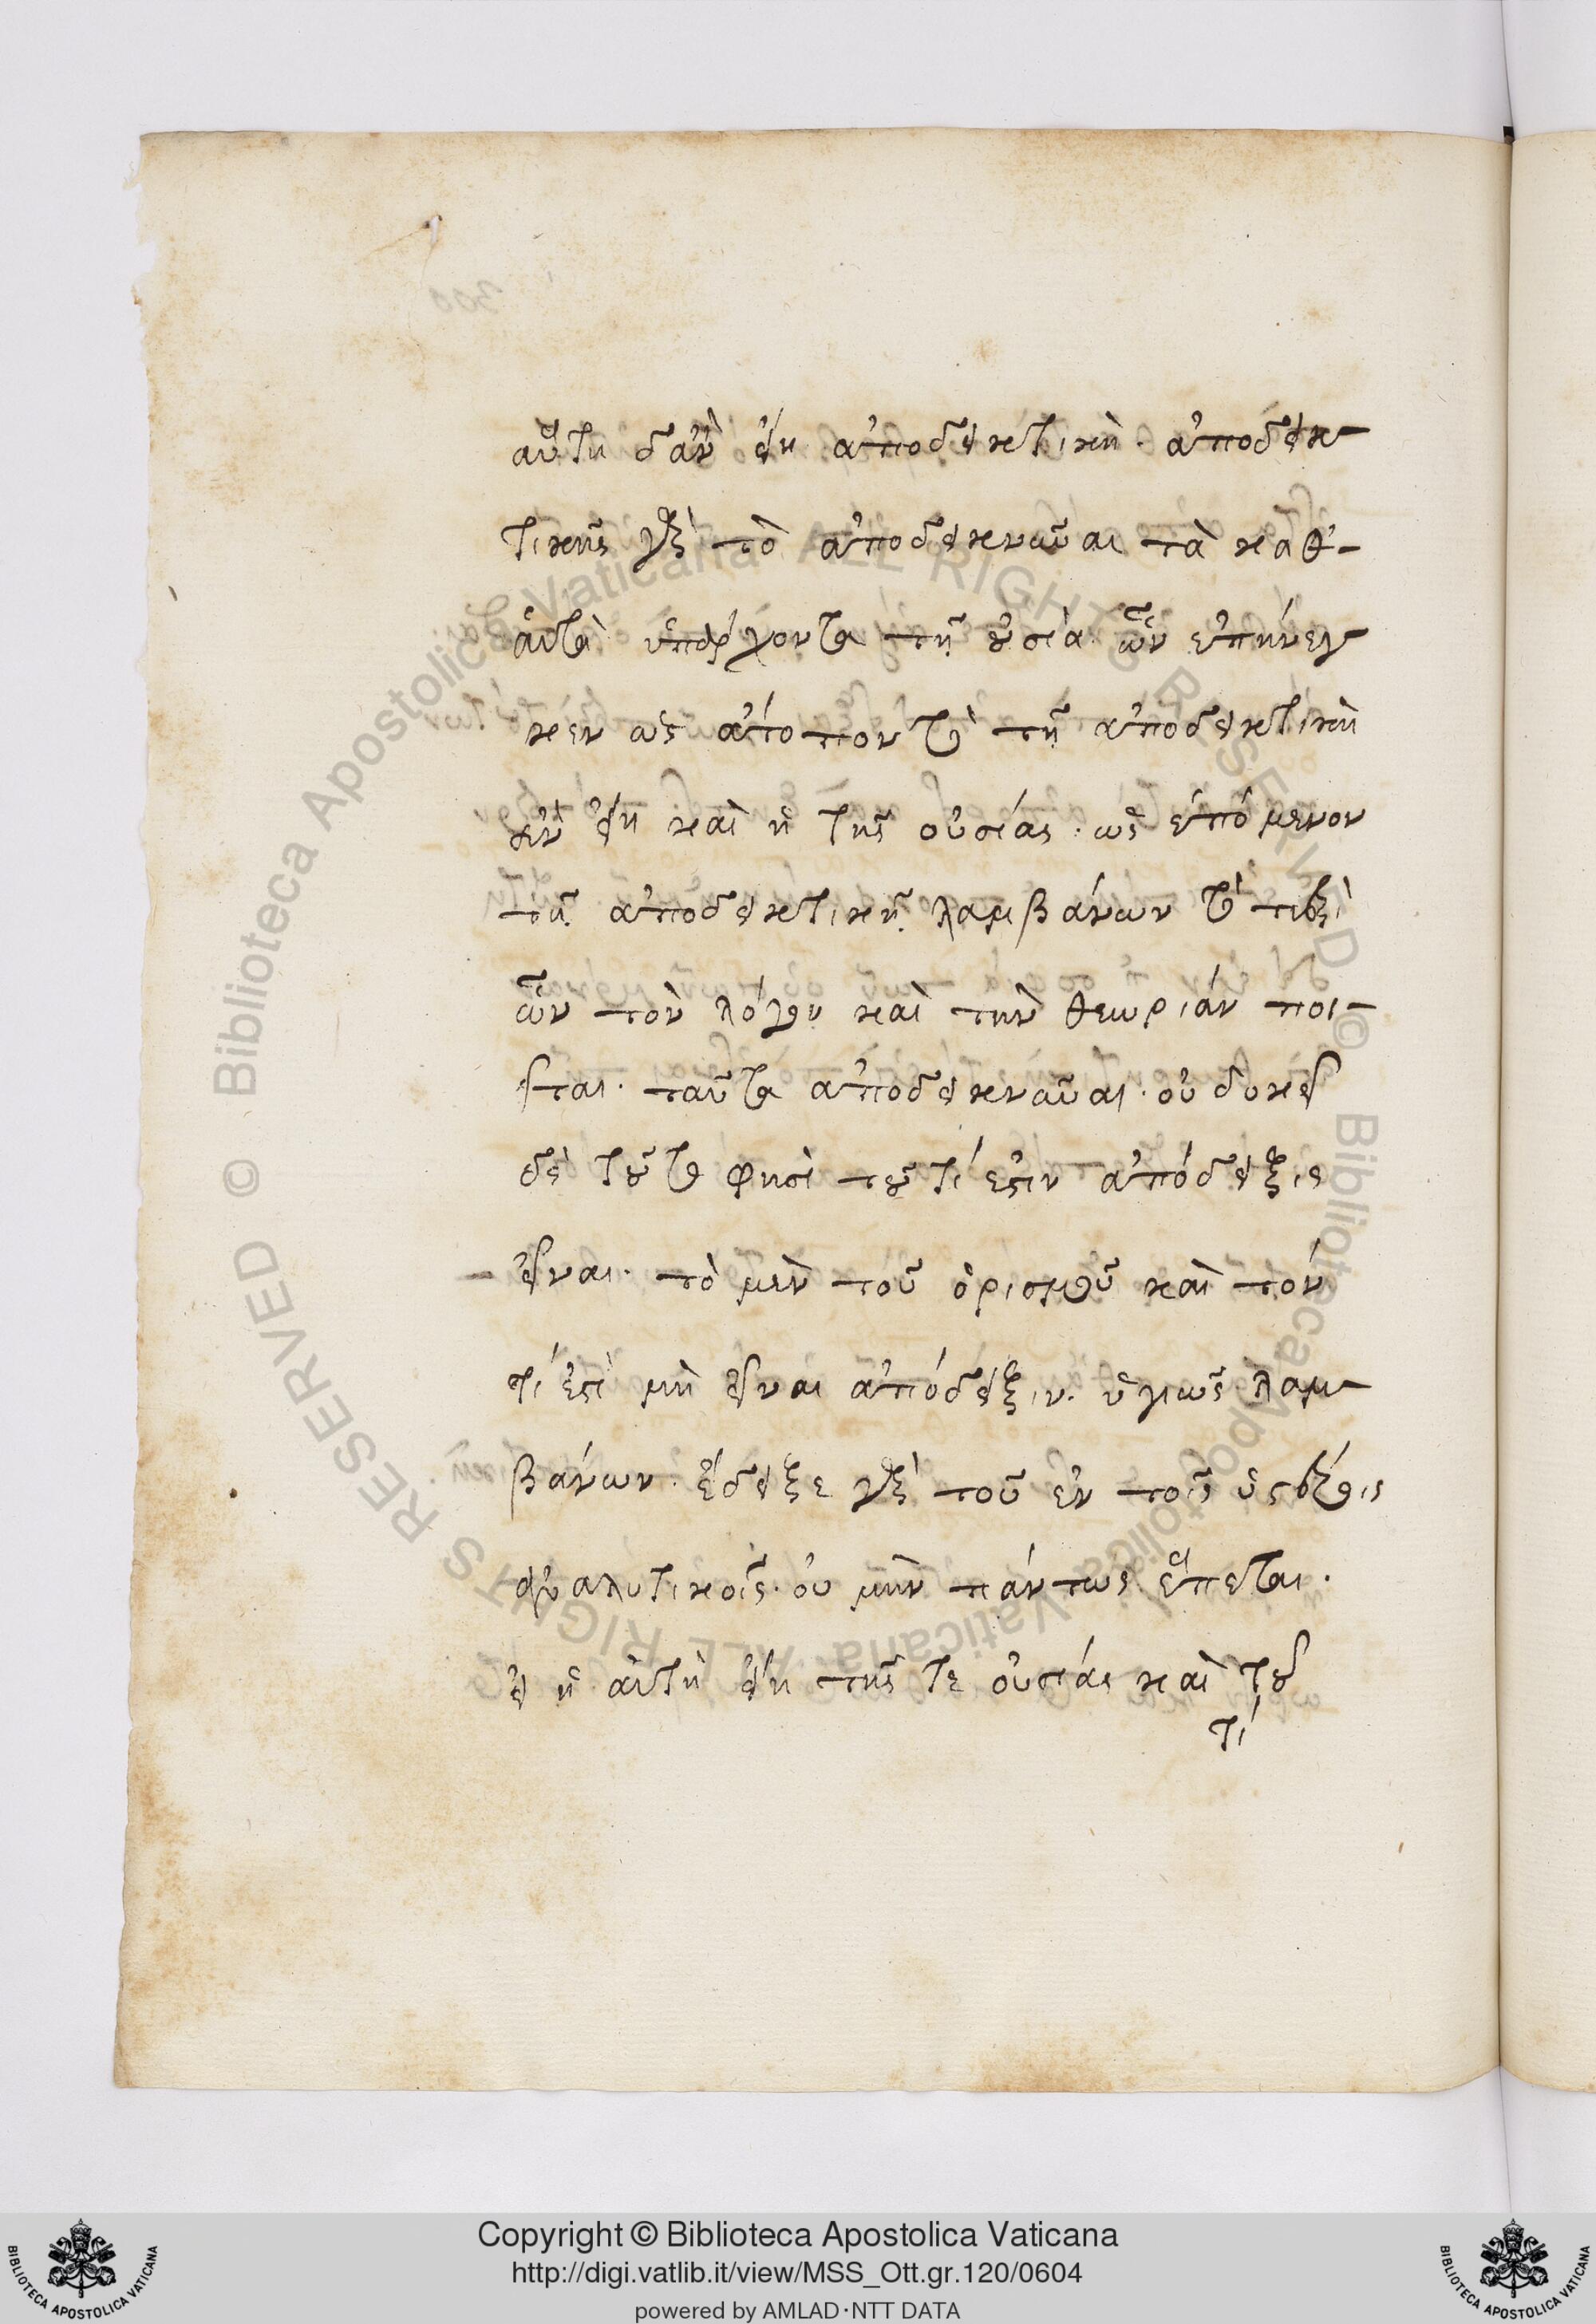 αὕτη δ' ἂν εἴη ἀποδεικτικὴ. ἀποδεικ-
τικῆς γὰρ τὸ ἀποδεικνῦναι τὰ καθ'-
αὑτὰ ὑπάρχοντα τῇ οὐσίᾳ ὧν ἐπήνεγ-
κεν ὡς ἄτοπον τὸ τῇ ἀποδεικτικὴ
ἂν εἴη καὶ ἡ τῆς οὐσίας. ὡς ἑπόμενον
τῇ ἀποδεικτικῇ λαμβάνων τὸ περὶ
ὧν τὸν λόγον καὶ τὴν θεωρίαν ποι-
εῖται. ταῦτα ἀποδεικνῦναι. οὐ δοκεῖ
δὲ τοῦτο φησὶ τοῦ τί ἐστιν ἀπόδειξις
εἶναι. τὸ μὲν τοῦ ὁρισμοῦ καὶ τοῦ
τί ἐστὶ μὴ εἶναι ἀπόδειξιν. ὑγιῶς λαμ-
βάνων. ἔδειξε γὰρ τοῦ ἐν τοῖς ὑστέροις
ἀναλυτικοῖς. οὐ μὴν πάντως ἕπεται.
εἰ ἡ αὐτὴ εἴη τῆς τε οὐσίας καὶ τοῦ
τί
Copyright © Biblioteca Apostolica Vaticana
http://digi.vatlib.it/view/MSS_Ott.gr.120/0604
powered by AMLAD·NTT DATA